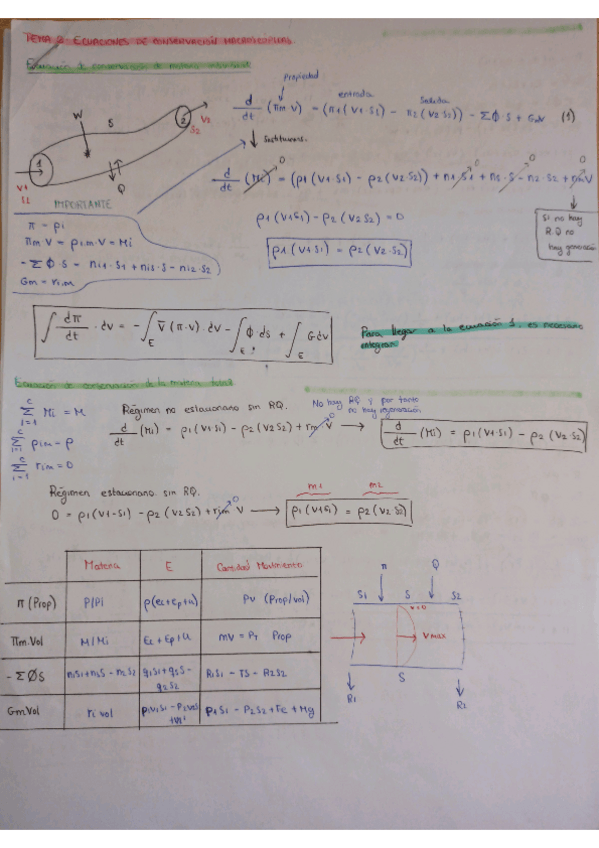 TEMA 2 ECUACIONES DE CONSERVACIÓN MACROSCÓPICAS.
Ecuación de conservación de materia individual
Propiedad
entrada
salida
d/dt (πm·V) = (π1(V1·S1) - π2(V2·S2)) - Σø·S + GmV (1)
Sustituimos.
W
S
2
V2
S2
1
Q
V1
S1
d/dt (Mi) = (ρ1(V1·S1) - ρ2(V2·S2)) + n1·S1 + ns·S - n2·S2 + rimV
0
0
0
ρ1(V1S1) - ρ2(V2S2) = 0
ρ1(V1·S1) = ρ2(V2·S2)
Si no hay
R.Q no
hay generación
IMPORTANTE
π = ρi
πm V = ρi.m·V = Mi
-Σø·S = ni1·S1 + nis·S - ni2·S2
Gm = ri.m
∫ dπ/dt · dv = -∫E ∇(π·v)·dv - ∫E ø·ds + ∫E G·dv
Para llegar a la ecuación 1, es necesario
integrar
Ecuación de conservación de la materia total
Σ i=1 c Mi = M
Σ i=1 c ρi.m = ρ
Σ i=1 c ri.m = 0
Régimen no estacionario sin RQ.
No hay RQ y por tanto
no hay generación
d/dt (Mi) = ρ1(V1S1) - ρ2(V2S2) + rm V → d/dt (Mi) = ρ1(V1·S1) - ρ2(V2·S2)
0
Régimen estacionario sin RQ.
m1
m2
0 = ρ1(V1·S1) - ρ2(V2S2) + rim V → ρ1(V1S1) = ρ2(V2S2)
0
Materia E Cantidad Movimiento
π (Prop) ρ/ρi ρ(ec+ep+u) ρv (Prop/vol)
πm.Vol M/Mi Ec+Ep+U mv = Pt Prop
-ΣøS n1S1+nsS-n2S2 q1S1+qsS-q2S2 R1S1-τS-R2S2
Gm.Vol ri vol P1V1S1-P2V2S2+W' P1S1-P2S2+Fc+Mg
π
Q
S1
S
S2
v=0
Vmax
S
R1
R2